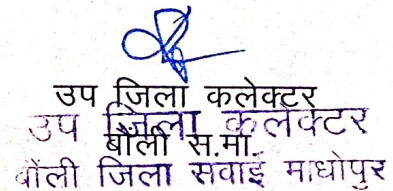 उप जिला कलेक्टर
उप जिला कलेक्टर
बौंली स.मा.
बौंली जिला सवाई माधोपुर